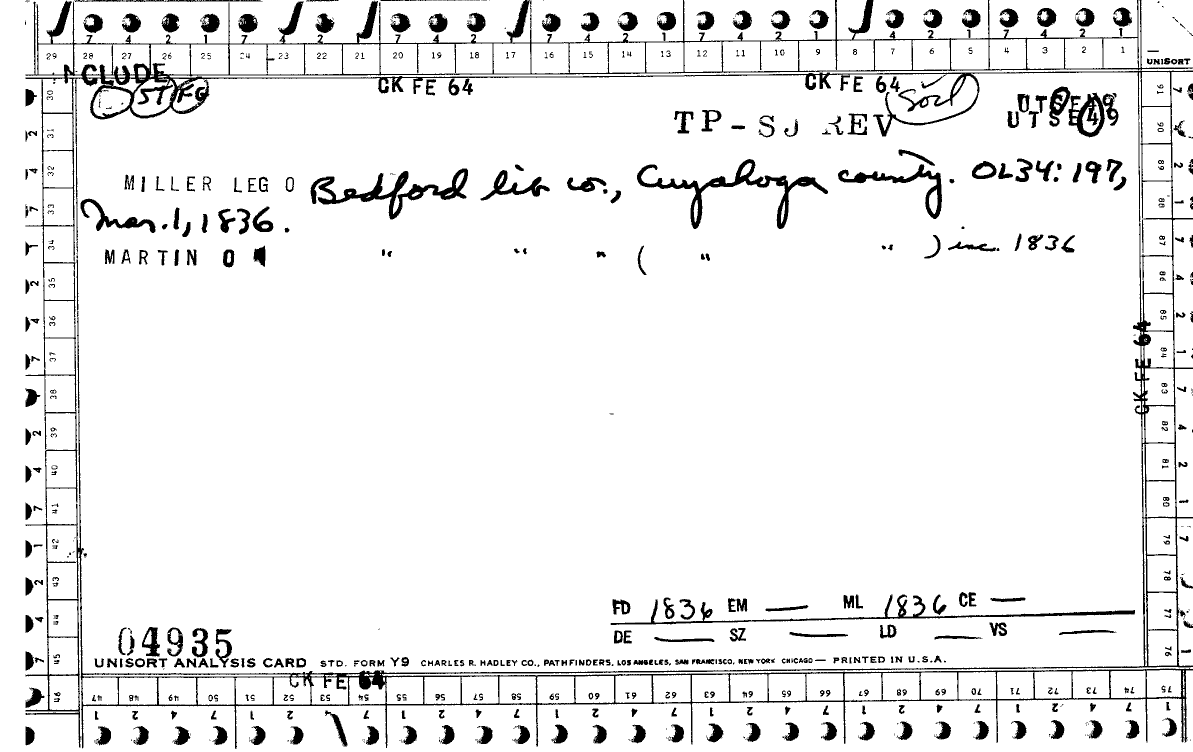 7 4 2 1 7 4 2 1 7 4 2 1 7 4 2 1 7 4 2 1
29 28 27 26 25 24 23 22 21 20 19 18 17 16 15 14 13 12 11 10 9 8 7 6 5 4 3 2 1
UNISORT
CLUDE
ST FG
CK FE 64
CK FE 64
Socl
UTSE49
UTSE49
TP-SJ REV
MILLER LEG O Bedford lib co., Cuyahoga county. OL34:197,
Mar. 1, 1836.
MARTIN O " " " ( " " ) inc. 1836
CK FE 64
FD 1836 EM — ML 1836 CE —
DE — SZ — LD — VS —
04935
UNISORT ANALYSIS CARD STD. FORM Y9 CHARLES R. HADLEY CO., PATHFINDERS, LOS ANGELES, SAN FRANCISCO, NEW YORK CHICAGO — PRINTED IN U.S.A.
CK FE 64
47 48 49 50 51 52 53 54 55 56 57 58 59 60 61 62 63 64 65 66 67 68 69 70 71 72 73 74 75
1 2 4 7 1 2 7 1 2 4 7 1 2 4 7 1 2 4 7 1 2 4 7 1 2 4 7 1